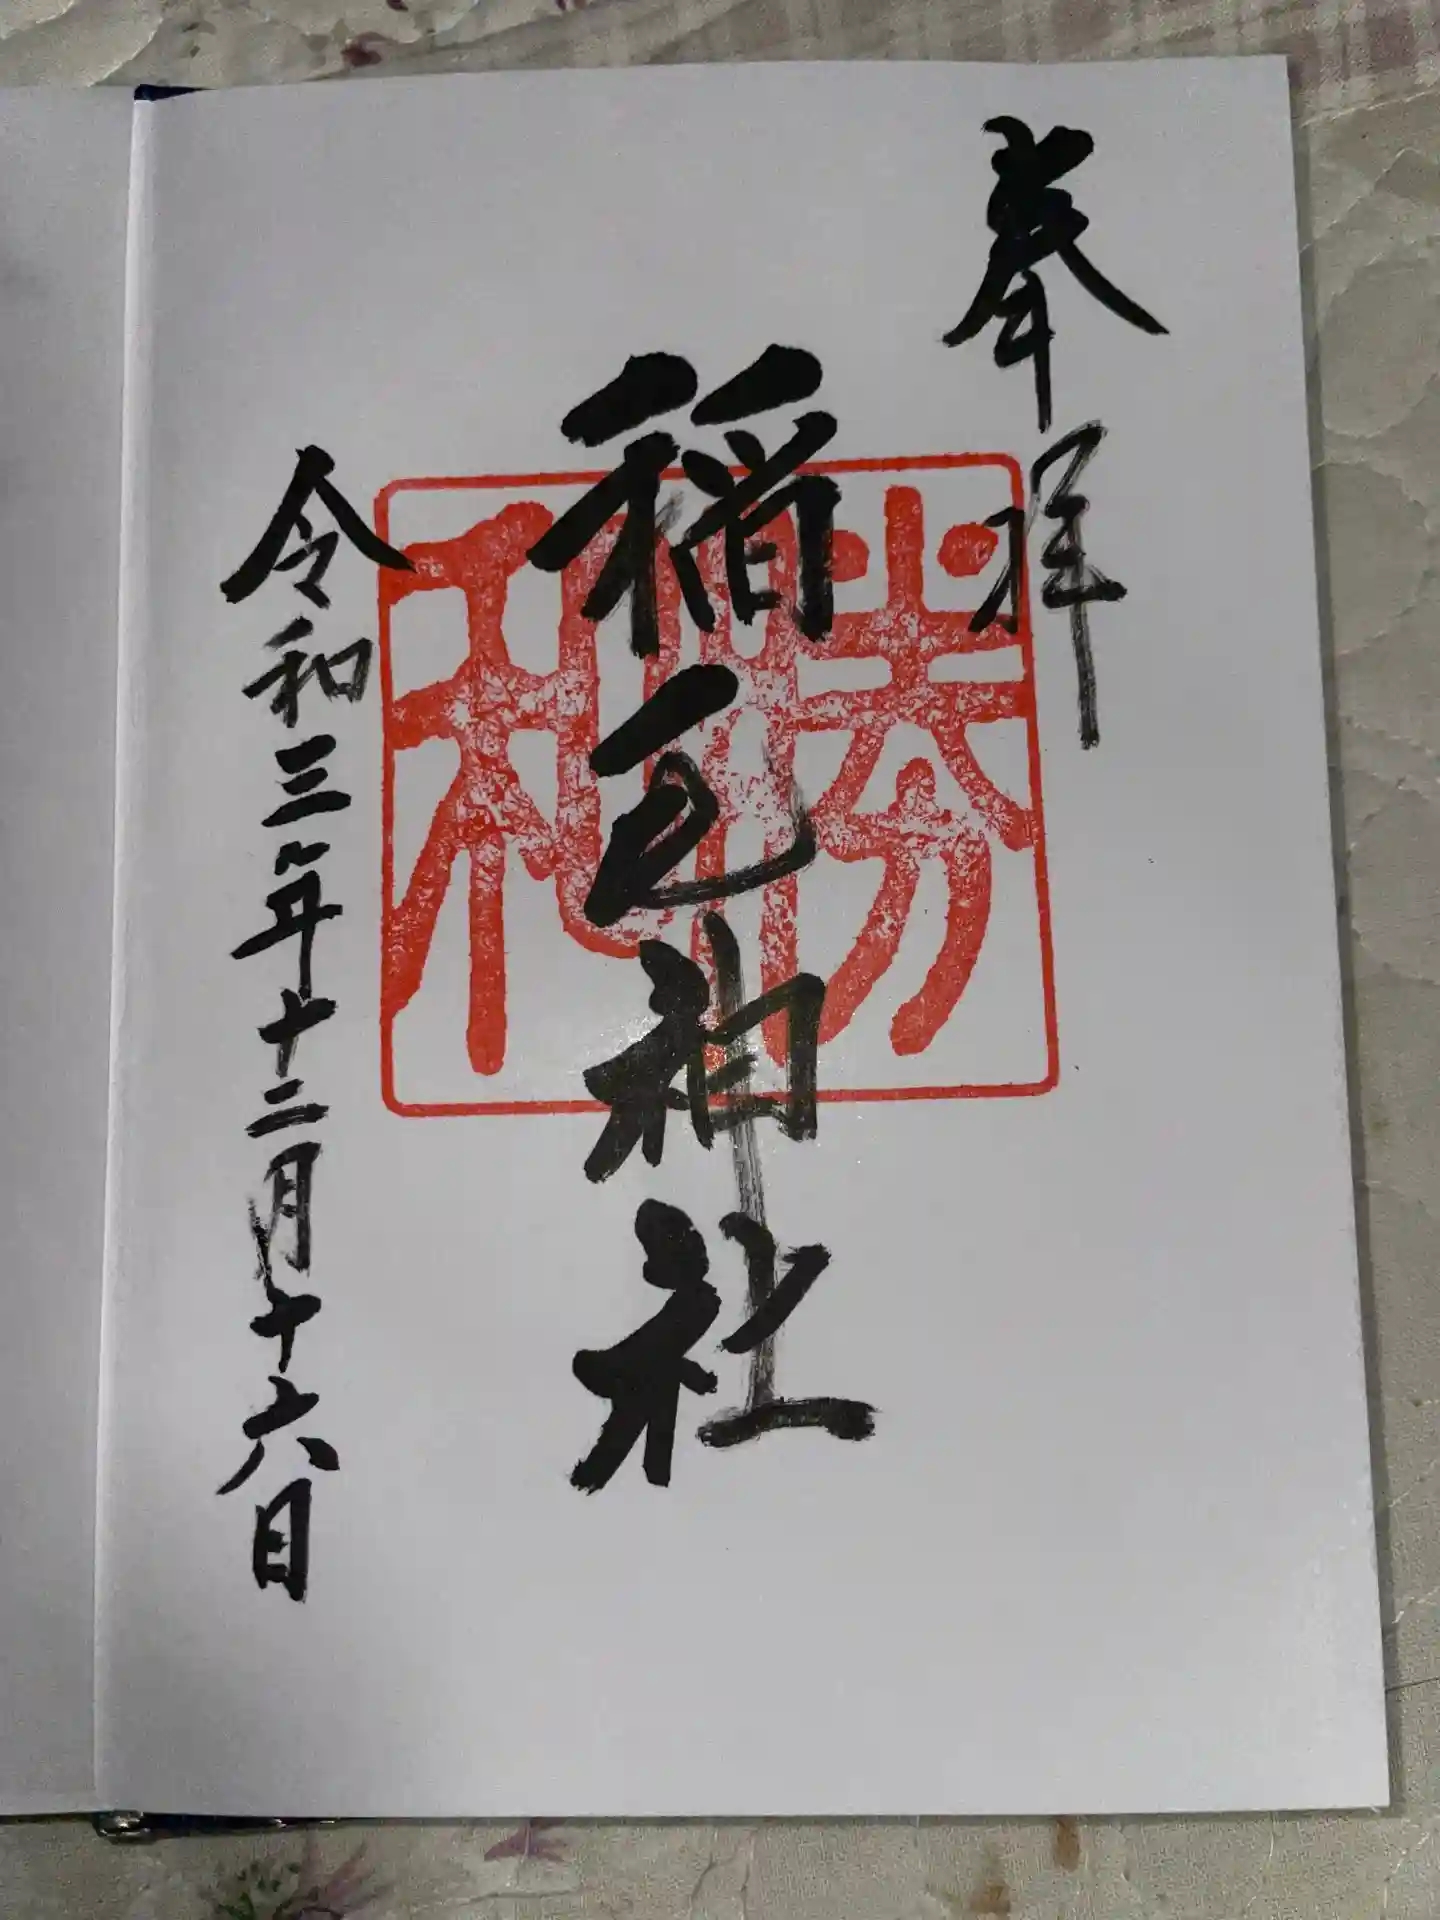 奉拝
稲毛神社
勝利
令和三年十二月十六日